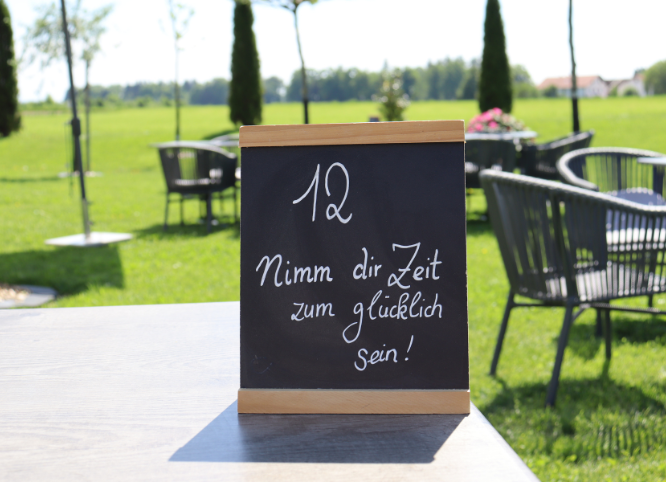 12
Nimm dir Zeit
zum glücklich
sein!